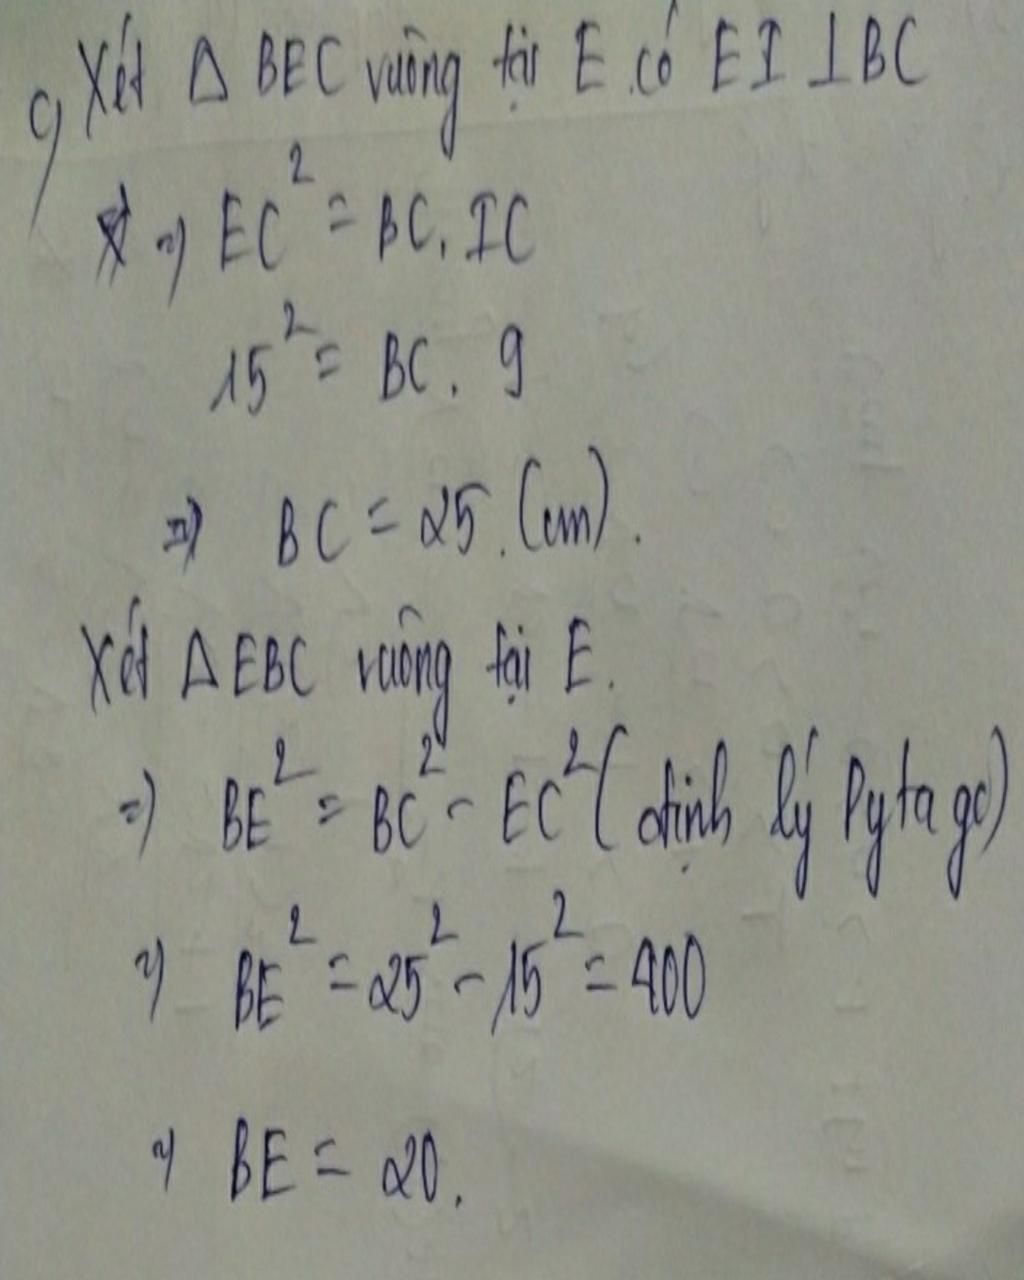 c) Xét Δ BEC vuông tại E có EI ⊥ BC
=) EC² = BC. IC
15² = BC. 9
=) BC = 25. (cm).
Xét Δ EBC vuông tại E.
=) BE² = BC² - EC² (định lý Pytago)
=) BE² = 25² - 15² = 400
=) BE = 20.